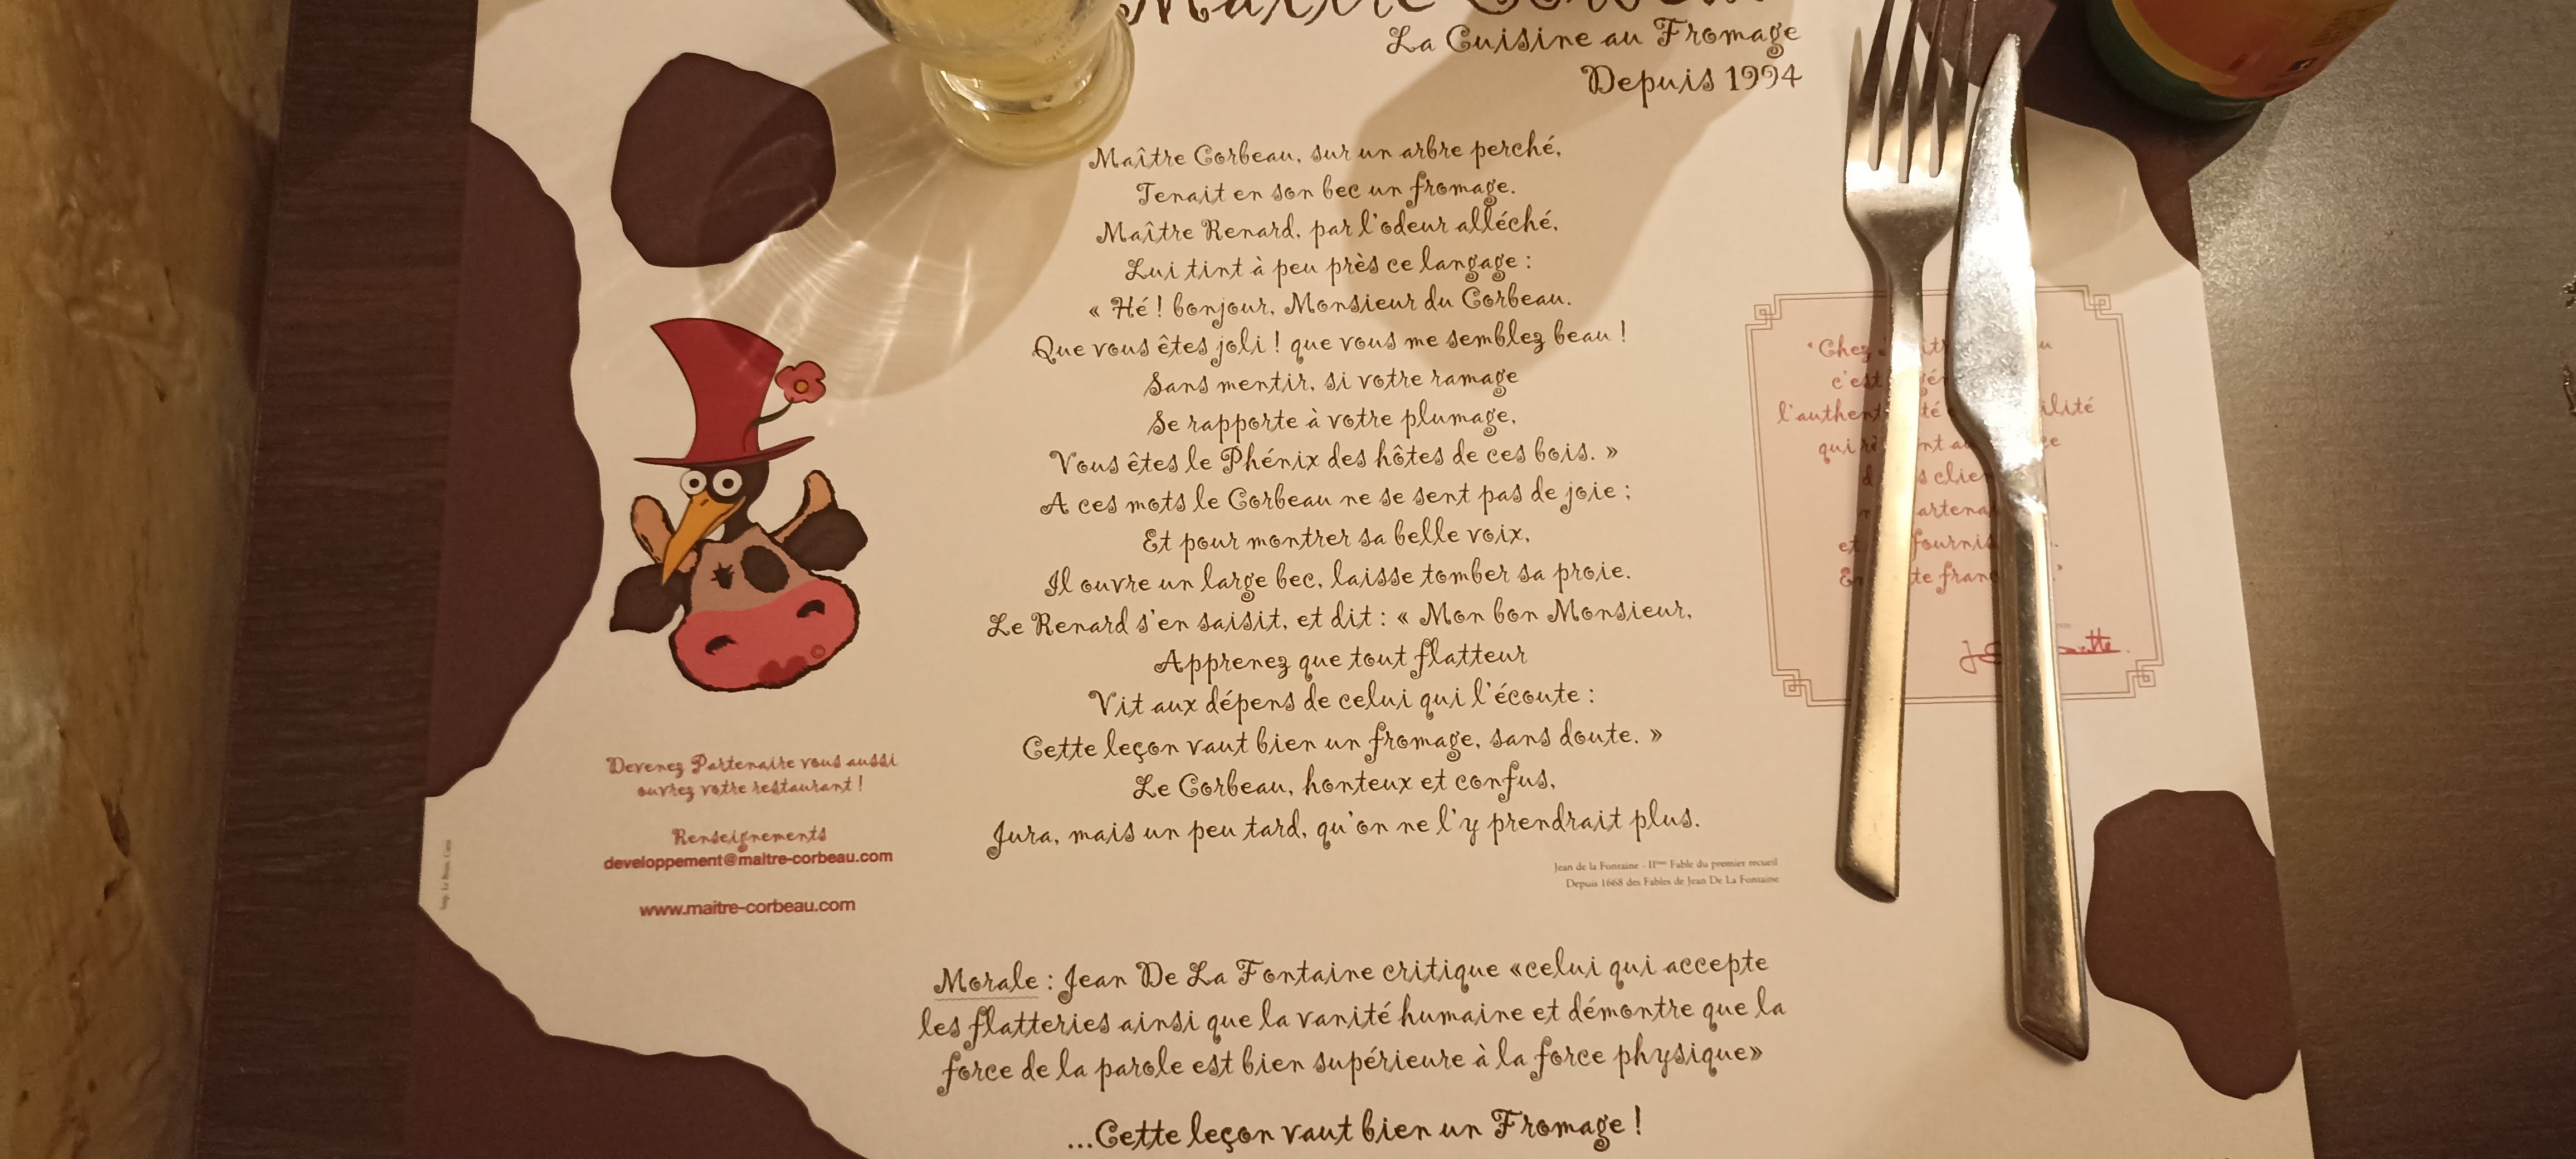 La Cuisine au Fromage
Depuis 1994
Maître Corbeau, sur un arbre perché,
Tenait en son bec un fromage.
Maître Renard, par l'odeur alléché,
Lui tint à peu près ce langage :
« Hé ! bonjour, Monsieur du Corbeau.
Que vous êtes joli ! que vous me semblez beau !
Sans mentir, si votre ramage
Se rapporte à votre plumage,
Vous êtes le Phénix des hôtes de ces bois. »
A ces mots le Corbeau ne se sent pas de joie ;
Et pour montrer sa belle voix,
Il ouvre un large bec, laisse tomber sa proie.
Le Renard s'en saisit, et dit : « Mon bon Monsieur,
Apprenez que tout flatteur
Vit aux dépens de celui qui l'écoute :
Cette leçon vaut bien un fromage, sans doute. »
Le Corbeau, honteux et confus,
Jura, mais un peu tard, qu'on ne l'y prendrait plus.
Jean de la Fontaine - IIème Fable du premier recueil
Depuis 1668 des Fables de Jean De La Fontaine
Morale : Jean De La Fontaine critique «celui qui accepte
les flatteries ainsi que la vanité humaine et démontre que la
force de la parole est bien supérieure à la force physique»
...Cette leçon vaut bien un Fromage !
Devenez Partenaire vous aussi
ouvrez votre restaurant !
Renseignements
developpement@maitre-corbeau.com
www.maitre-corbeau.com
"Chez
c'est
qui